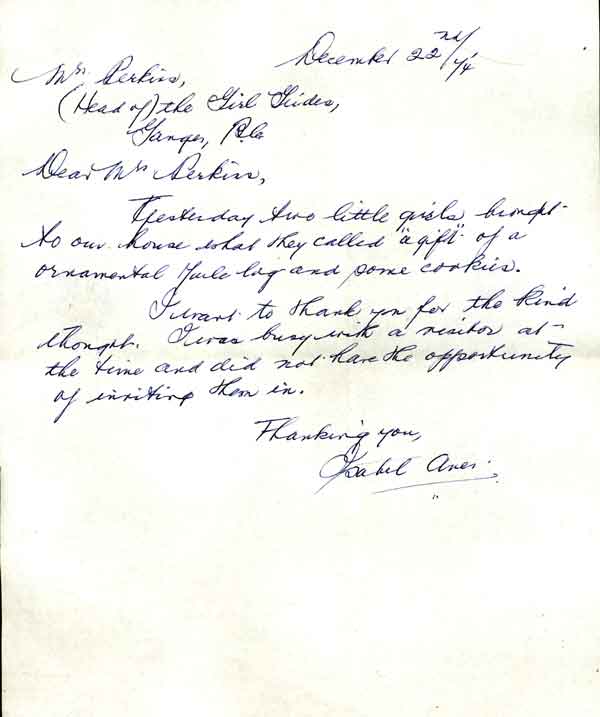 December 22nd/74
Mrs Perkins,
(Head of) the Girl Guides,
Ganges, B.C.
Dear Mrs Perkins,
Yesterday two little girls brought
to our house what they called "a gift" of a
ornamental Yule log and some cookies.
I want to thank you for the kind
thought. I was busy with a visitor at
the time and did not have the opportunity
of inviting them in.
Thanking you,
Isabel